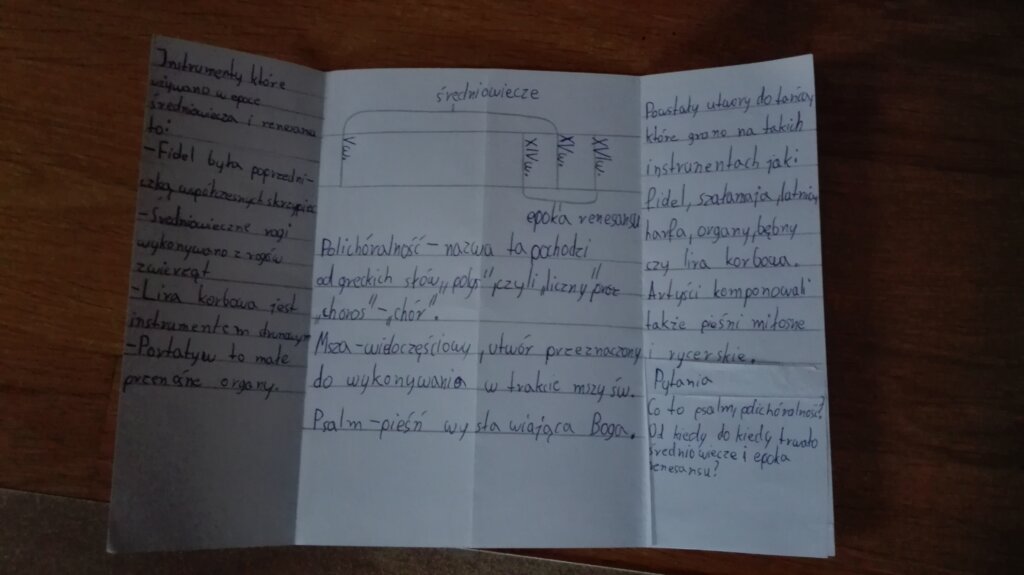 Instrumenty które
używano w epoce
średniowiecza i renesansu
to:
-Fidel była poprzedni-
czką współczesnych skrzypiec
-Średniowieczne rogi
wykonywano z rogów
zwierząt
-Lira korbowa jest
instrumentem strunowym
-Portatyw to małe
przenośne organy.
średniowiecze
Vw. XIVw. XVw. XVIw.
epoka renesansu
Polichóralność - nazwa ta pochodzi
od greckich słów „polys" czyli „liczny" oraz
„choros"-„chór".
Msza-wieloczęściowy, utwór przeznaczony
do wykonywania w trakcie mszy św.
Psalm-pieśń wysławiająca Boga.
Powstały utwory do tańców
które grano na takich
instrumentach jak:
fidel, szałamaja, lutnia,
harfa, organy, bębny
czy lira korbowa.
Artyści komponowali
także pieśni miłosne
i rycerskie.
Pytania
Co to psalm, polichóralność?
Od kiedy do kiedy trwało
średniowiecze i epoka
renesansu?